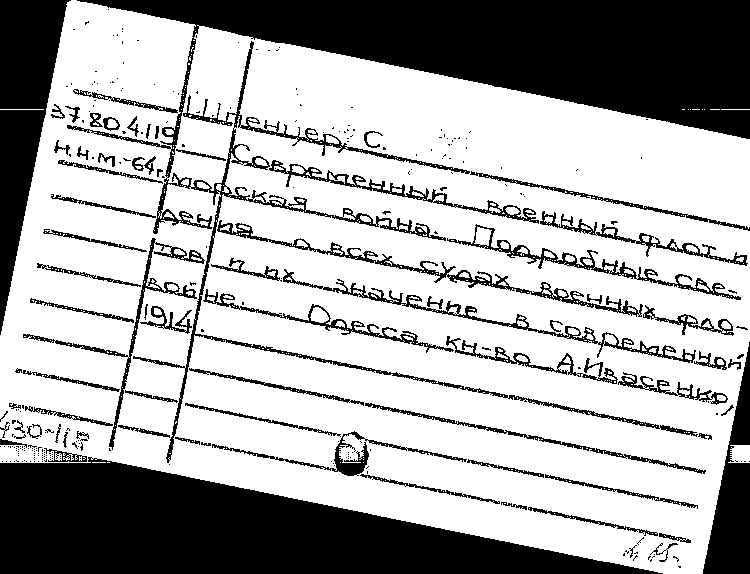 Шпенцер, С.
37.80.4.119.
Современный военный флот и
н.н.м.-64г.
морская война. Подробные све-
дения о всех судах военных фло-
тов и их значение в современной
войне. Одесса, кн-во А.Ивасенко,
1914.
430-118